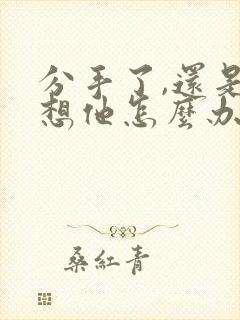 分手了,還是
想他怎麼办
桑紅青